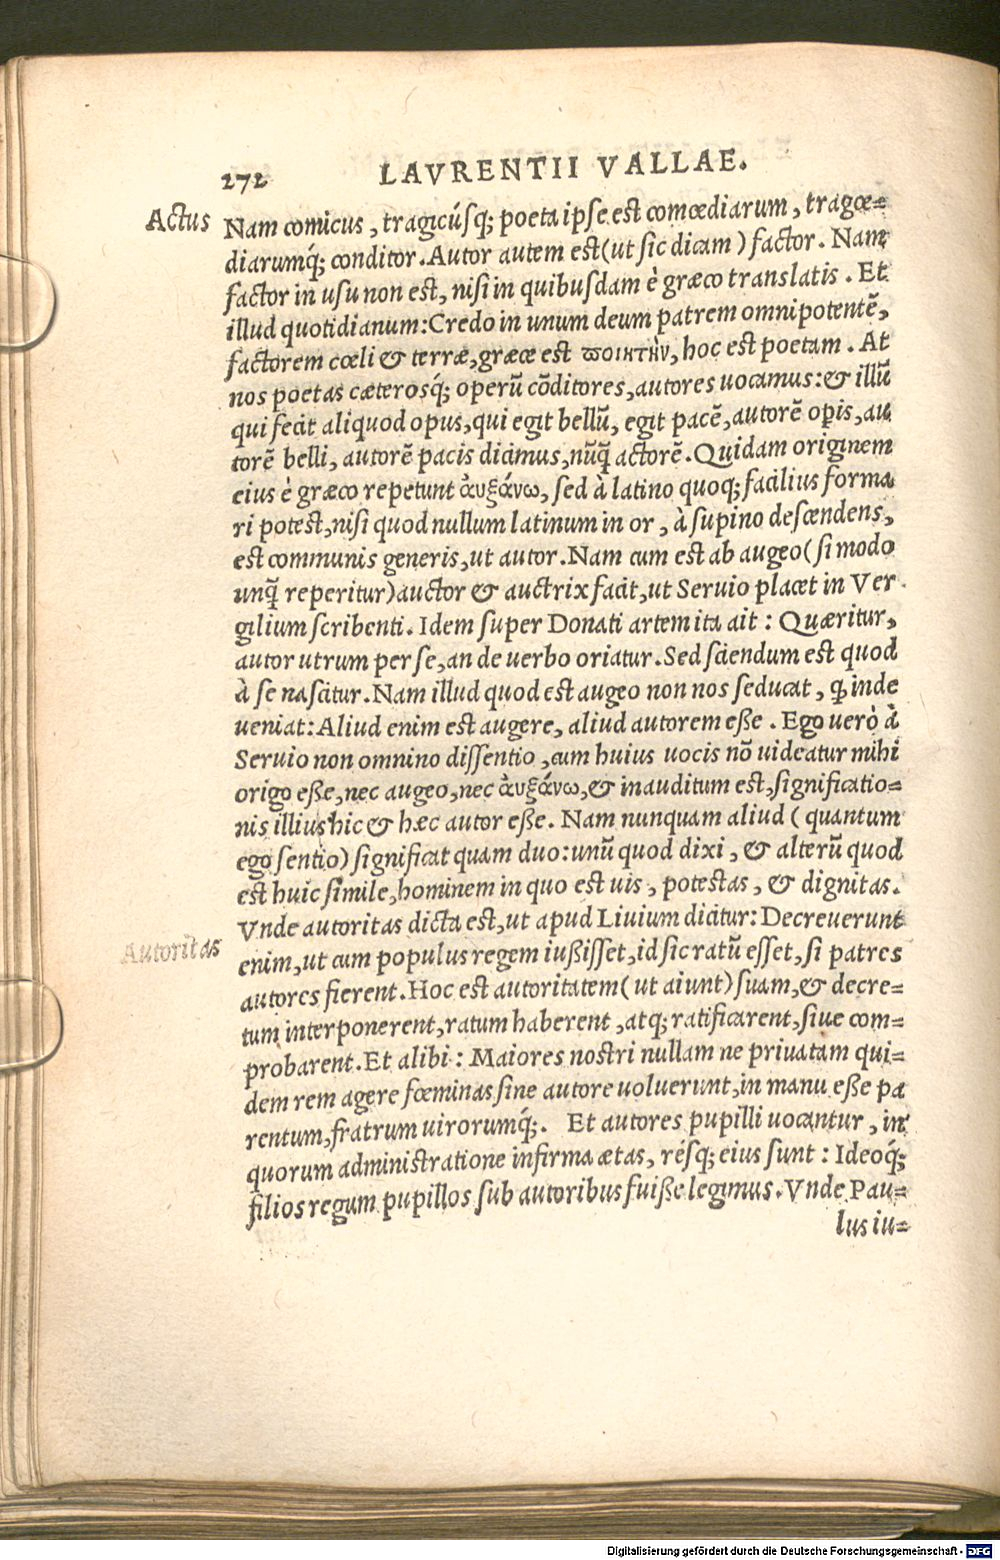 272 LAVRENTII VALLAE.
Actus Nam comicus, tragicúsq; poeta ipse est comœdiarum, tragœ=
diarumq́; conditor. Autor autem est (ut sic dicam) factor. Nam
factor in usu non est, nisi in quibusdam è græco translatis. Et
illud quotidianum: Credo in unum deum patrem omnipotentẽ,
factorem cœli & terræ, græce est ϖοιητὴν, hoc est poetam. At
nos poetas cæterosq́; operũ cõditores, autores uocamus: & illũ
qui fecit aliquod opus, qui egit bellũ, egit pacẽ, autorẽ opis, au
torẽ belli, autorẽ pacis dicimus, nũq̃ actorẽ. Quidam originem
eius è græco repetunt ἀυξάνω, sed à latino quoq; facilius forma
ri potest, nisi quod nullum latinum in or, à supino descendens,
est communis generis, ut autor. Nam cum est ab augeo (si modo
unq̃ reperitur) auctor & auctrix facit, ut Seruio placet in Ver
gilium scribenti. Idem super Donati artem ita ait: Quæritur,
autor utrum per se, an de uerbo oriatur. Sed sciendum est quod
à se nascitur. Nam illud quod est augeo non nos seducat, ꝙ inde
ueniat: Aliud enim est augere, aliud autorem eße. Ego uerò à
Seruio non omnino dissentio, cum huius uocis nõ uideatur mihi
origo eße, nec augeo, nec ἀυξάνω, & inauditum est, significatio=
nis illius hic & hæc autor eße. Nam nunquam aliud (quantum
ego sentio) significat quam duo: unũ quod dixi, & alterũ quod
est huic simile, hominem in quo est uis, potestas, & dignitas.
Vnde autoritas dicta est, ut apud Liuium dicitur: Decreuerunt
Autoritas enim, ut cum populus regem iußisset, id sic ratũ esset, si patres
autores fierent. Hoc est autoritatem (ut aiunt) suam, & decre=
tum interponerent, ratum haberent, atq; ratificarent, siue com=
probarent. Et alibi: Maiores nostri nullam ne priuatam qui=
dem rem agere fœminas sine autore uoluerunt, in manu eße pa
rentum, fratrum uirorumq́;. Et autores pupilli uocantur, in
quorum administratione infirma ætas, résq; eius sunt: Ideoq́;
filios regum pupillos sub autoribus fuiße legimus. Vnde Pau=
lus iu=
Digitalisierung gefördert durch die Deutsche Forschungsgemeinschaft - DFG